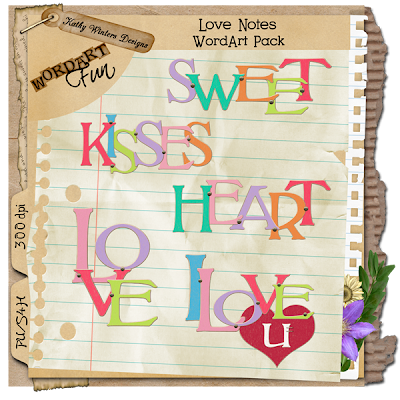 Kathy Winters Designs
WORDART
Fun
Love Notes
WordArt Pack
SWEET
KISSES
HEART
LO
VE
I LOVE
U
300 dpi
PU/S4H